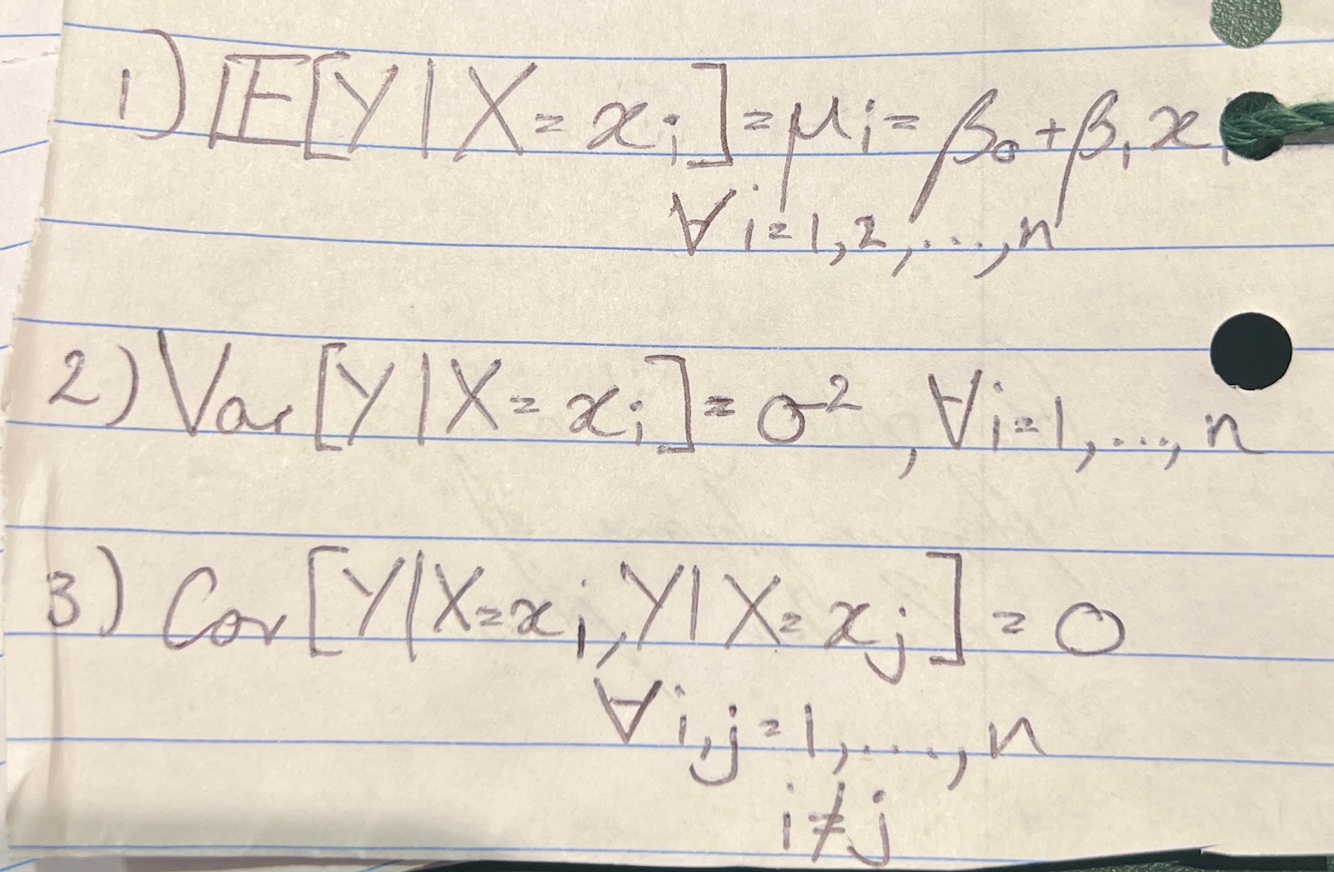 1) 𝔼[Y|X=xᵢ]=μᵢ=β₀+β₁xᵢ
∀i=1,2,...,n
2) Var[Y|X=xᵢ]=σ², ∀i=1,...,n
3) Cov[Y|X=xᵢ,Y|X=xⱼ]=0
∀i,j=1,....,n
i≠j